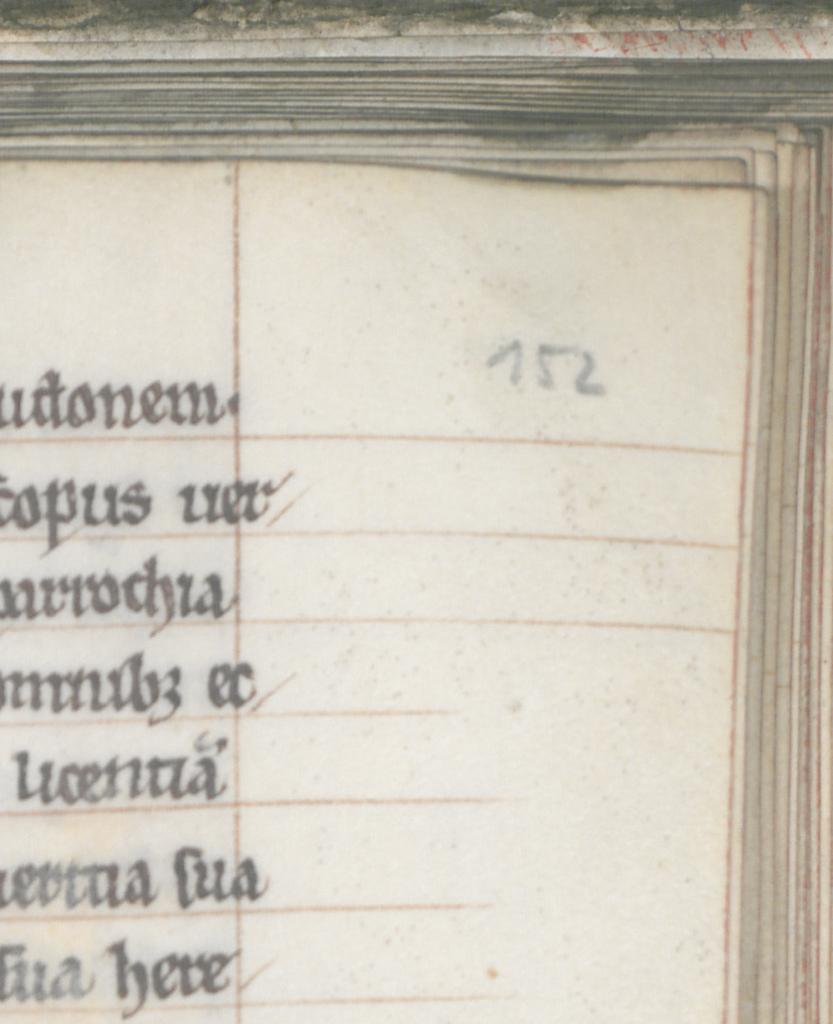 152
uctonem.
copus uer/
parrochia
omnibꝫ ec/
licentiã
uertia sua
sua here/